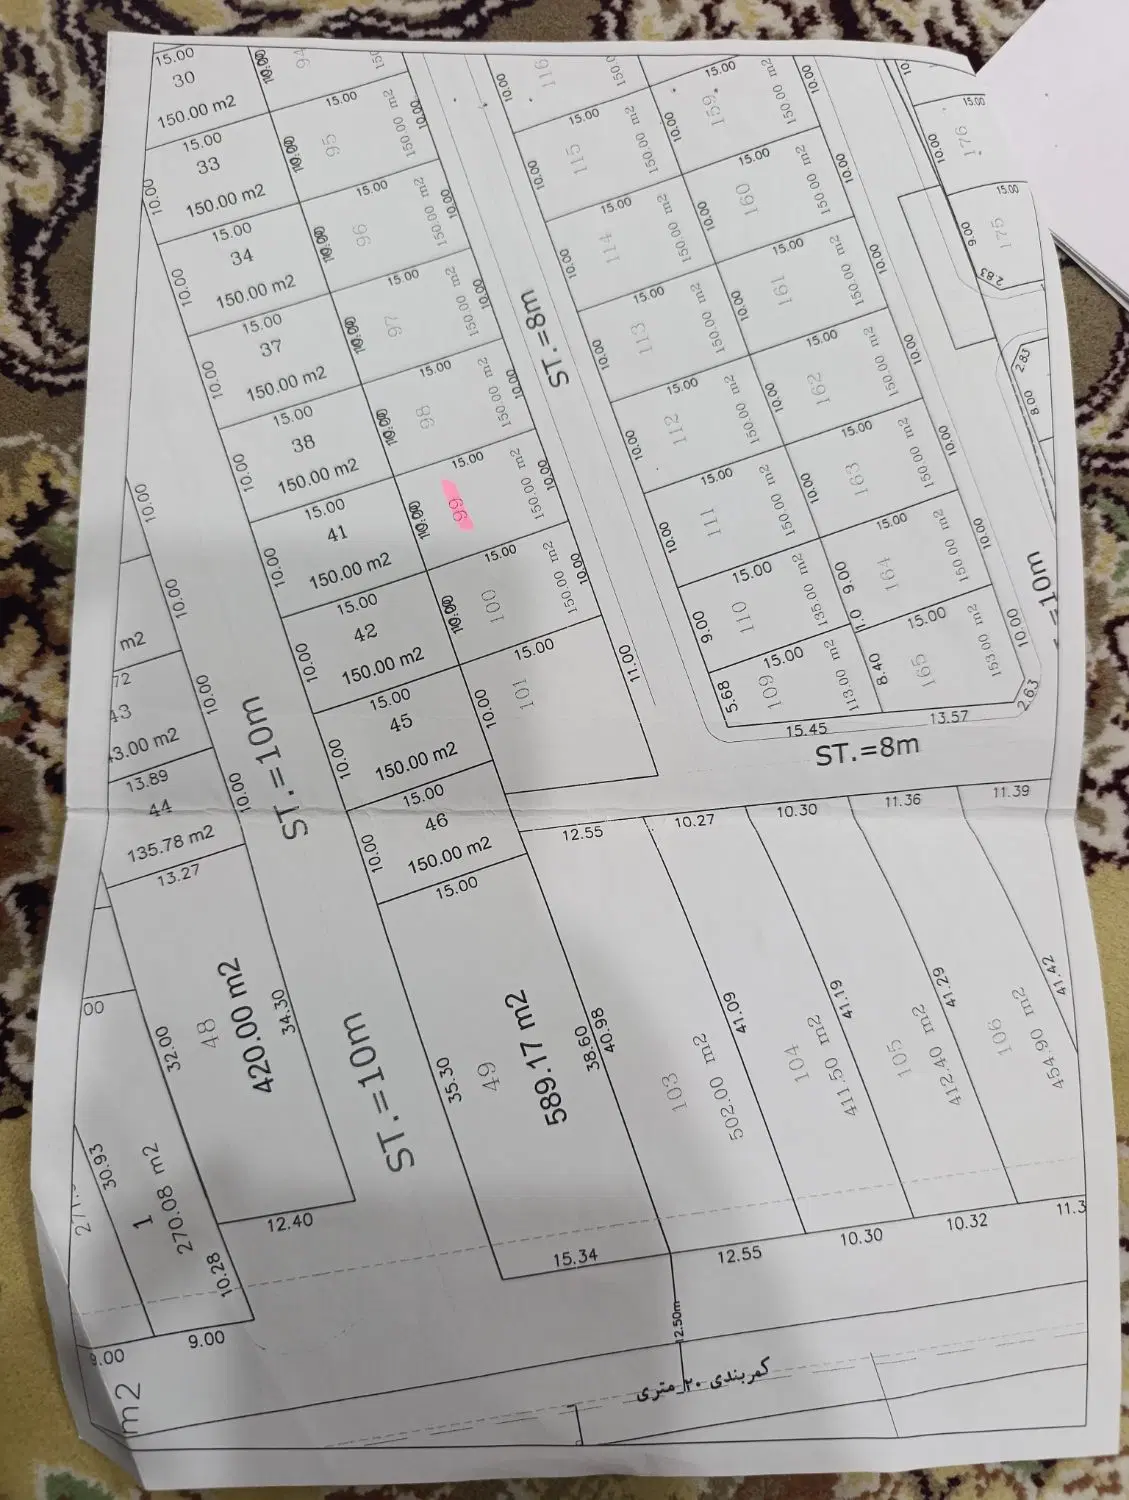 15.00
30
150.00 m2
15.00
33
150.00 m2
10.00
15.00
34
150.00 m2
10.00
15.00
37
150.00 m2
10.00
15.00
38
150.00 m2
10.00
15.00
41
150.00 m2
10.00
15.00
42
150.00 m2
10.00
15.00
45
150.00 m2
10.00
15.00
46
150.00 m2
10.00
15.00
94
15.00
95
150.00 m2
10.00
10.00
15.00
96
150.00 m2
10.00
15.00
97
150.00 m2
10.00
15.00
98
150.00 m2
10.00
15.00
99
150.00 m2
10.00
15.00
100
150.00 m2
10.00
15.00
101
10.00
11.00
ST.=8m
116
10.00
15.00
115
150.00 m2
10.00
15.00
114
150.00 m2
10.00
15.00
113
150.00 m2
10.00
15.00
112
150.00 m2
10.00
15.00
111
150.00 m2
10.00
15.00
110
135.00 m2
9.00
15.00
109
113.00 m2
5.68
15.45
15.00
159
150.00 m2
10.00
10.00
15.00
160
150.00 m2
10.00
10.00
15.00
161
150.00 m2
10.00
10.00
15.00
162
150.00 m2
10.00
10.00
15.00
163
150.00 m2
10.00
10.00
15.00
164
150.00 m2
9.00
10.00
1.0
15.00
165
153.00 m2
8.40
10.00
13.57
2.63
15.00
176
10.00
15.00
175
9.00
2.83
2.83
8.00
=10m
ST.=8m
10.00
10.00
m2
72
43
3.00 m2
10.00
13.89
44
135.78 m2
10.00
13.27
ST.=10m
48
420.00 m2
32.00
34.30
12.40
ST.=10m
00
30.93
1
270.08 m2
10.28
9.00
9.00
m2
35.30
49
589.17 m2
38.60
40.98
15.34
12.55
103
502.00 m2
41.09
12.55
10.27
104
411.50 m2
41.19
10.30
10.30
105
412.40 m2
41.29
10.32
11.36
106
454.90 m2
41.42
11.3
11.39
12.50m
کمربندی ۲۰ متری